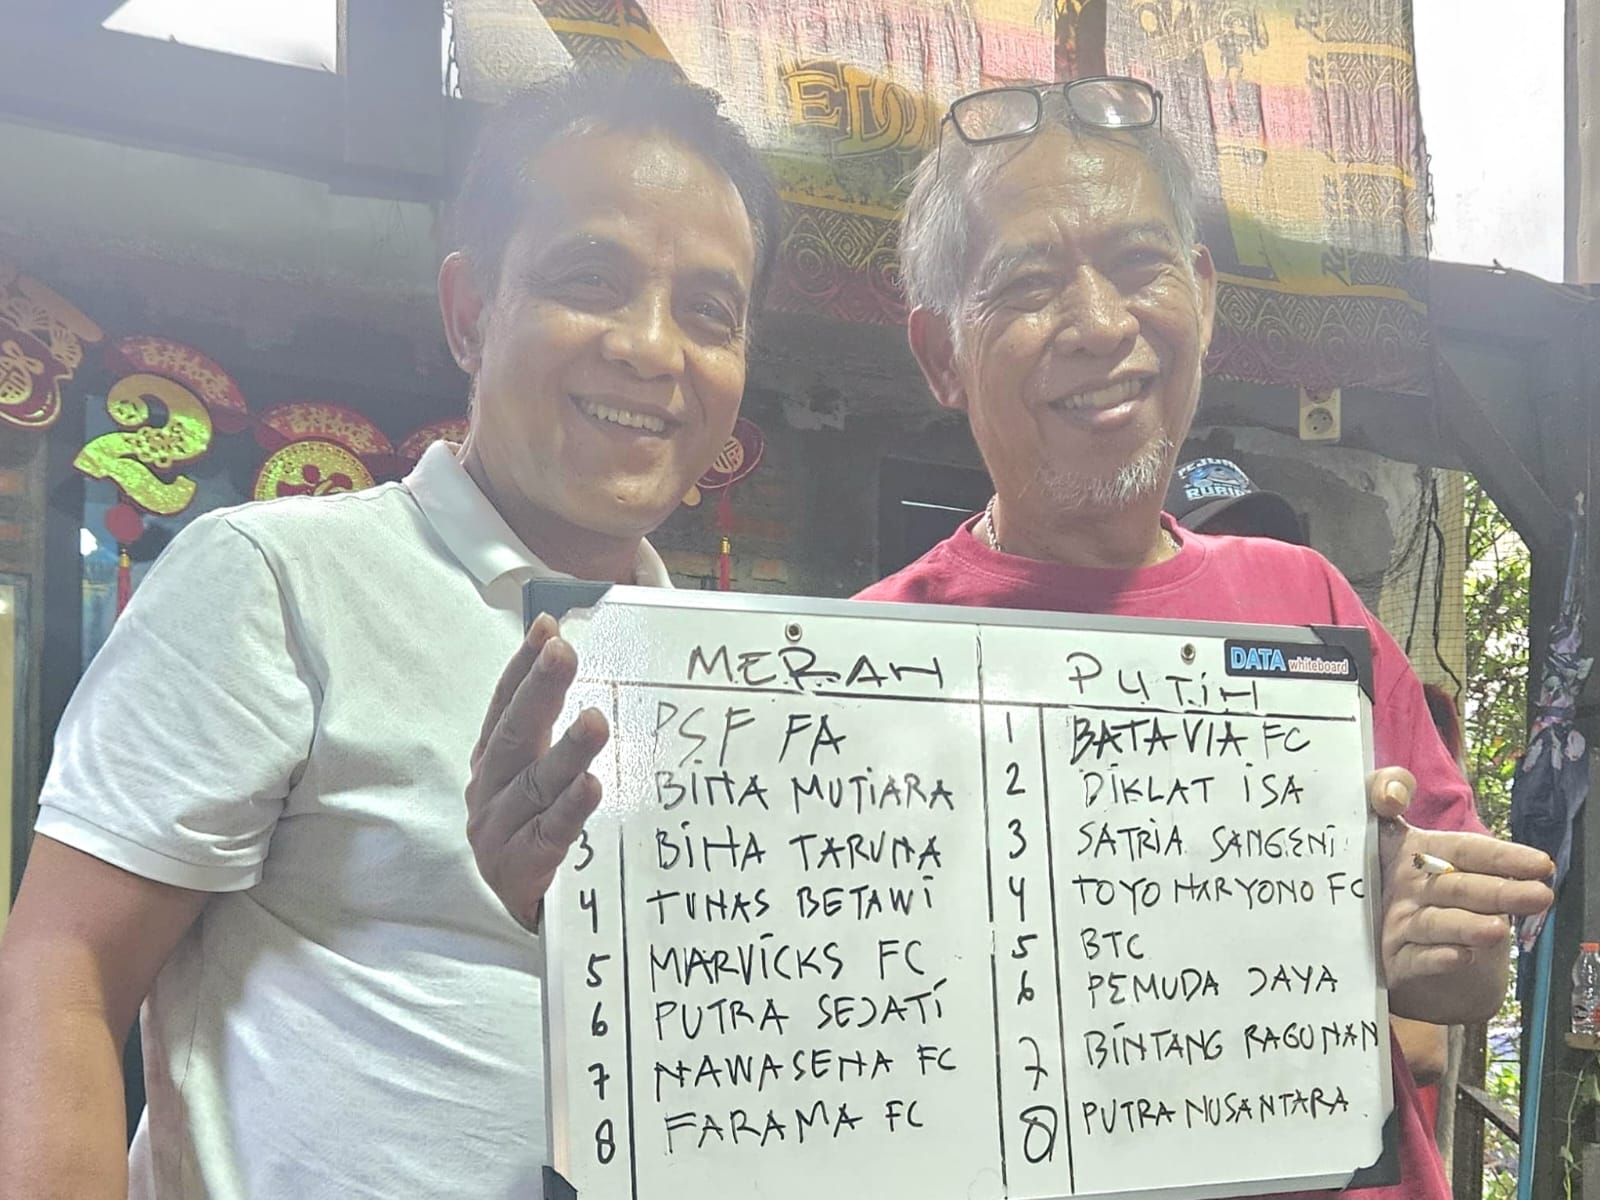 EDDI
PEJUNG
RUBI
DATA whiteboard
MERAH PUTIH
PSF FA 1 BATAVIA FC
BINA MUTIARA 2 DIKLAT ISA
3 BINA TARUNA 3 SATRIA SANGENI
4 TUNAS BETAWI 4 TOYO HARYONO FC
5 MARVICKS FC 5 BTC
6 PUTRA SEJATI 6 PEMUDA JAYA
7 NAWASENA FC 7 BINTANG RAGUNAN
8 FARAMA FC 8 PUTRA NUSANTARA
2